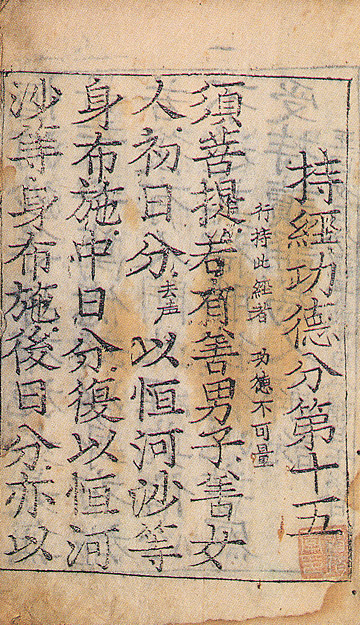 持經功德分第十五
行持此經者 功德不可量
須菩提若有善男子善女
人初日分去声以恒河沙等
身布施中日分復以恒河
沙等身布施後日分亦以